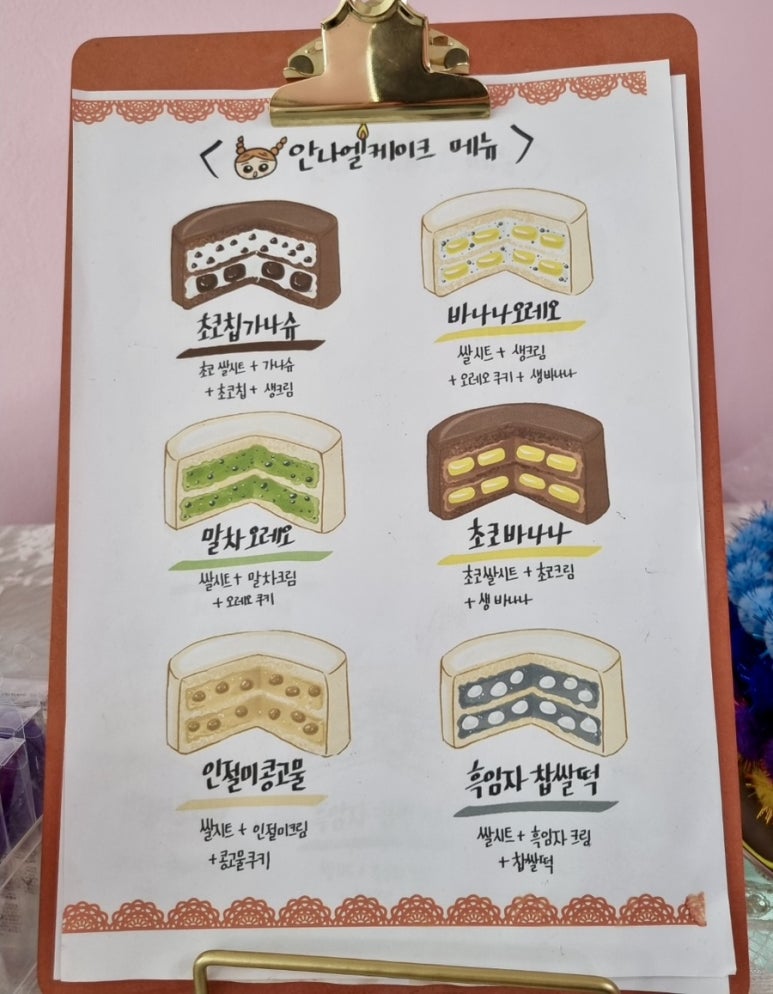 < 안나엘케이크 메뉴 >
초코칩가나슈
초코 쌀시트 + 가나슈
+ 초코칩 + 생크림
바나나오레오
쌀시트 + 생크림
+ 오레오 쿠키 + 생바나나
말차오레오
쌀시트 + 말차크림
+ 오레오 쿠키
초코바나나
초코쌀시트 + 초코크림
+ 생 바나나
인절미콩고물
쌀시트 + 인절미크림
+ 콩고물쿠키
흑임자 찹쌀떡
쌀시트 + 흑임자 크림
+ 찹쌀떡